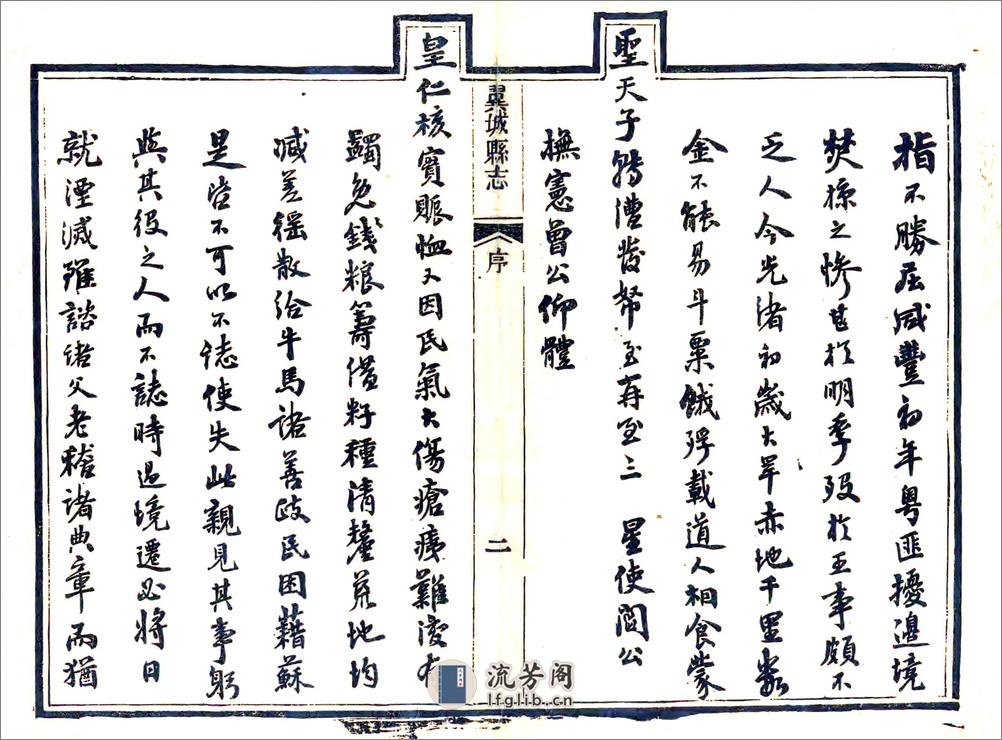 指不勝屈咸豐初年粵匪擾邊境
焚掠之慘甚於明季歿於王事頗不
乏人今光緒初歲大旱赤地千里數
金不能易斗粟餓殍載道人相食蒙
聖天子轉漕發帑至再至三 星使閻公
撫憲曾公仰體
翼城縣志
序
二
皇仁核實賑恤又因民氣大傷瘡痍難復有
蠲免錢粮籌借籽種清釐荒地均
減差徭散給牛馬諸善政民困藉蘇
是皆不可以不誌使失此親見其事躬
與其役之人而不誌時過境遷必將日
就湮滅雖諮諸父老稽諸典章而猶
流芳阁
lfglib.cn